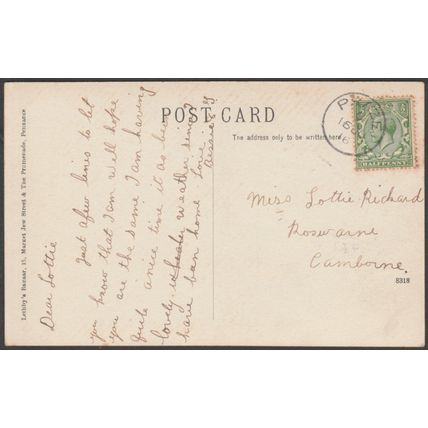 POST CARD
The address only to be written here
HALFPENNY
Lethby's Bazaar, 15, Market Jew Street & The Promenade, Penzance
Dear Lottie
Just afew lines to let
you know that I am well hope
you are the same I am having
quite anice time it as been
lovely weather since I
have ben home Love
Bessie
Miss Lottie Richard
Roswarne
Camborne.
8318